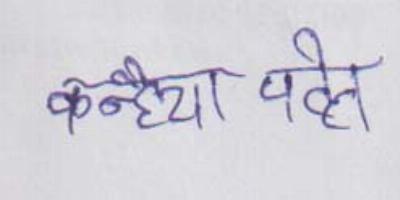 कन्हैया पटेल